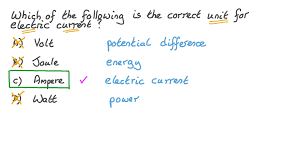 Which of the following is the correct unit for
electric current?
A) Volt potential difference
B) Joule energy
C) Ampere ✓ electric current
D) Watt power